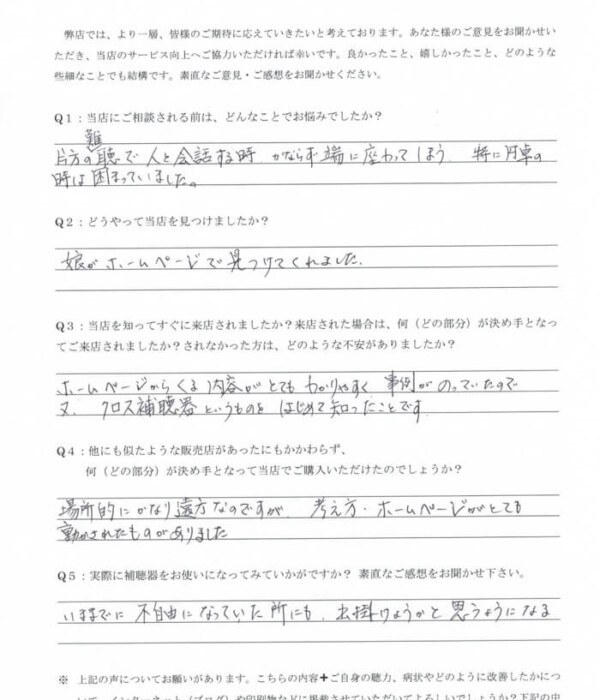 弊店では、より一層、皆様のご期待に応えていきたいと考えております。あなた様のご意見をお聞かせい
ただき、当店のサービス向上へご協力いただければ幸いです。良かったこと、嬉しかったこと、どのような
些細なことでも結構です。素直なご意見・ご感想をお聞かせください。
Q1：当店にご相談される前は、どんなことでお悩みでしたか？
難
片方の聴で 人と会話する時 かならず端に座わってしまう 特に円卓の
時は困まっていました。
Q2：どうやって当店を見つけましたか？
娘がホームページで見つけてくれました.
Q3：当店を知ってすぐに来店されましたか？来店された場合は、何（どの部分）が決め手となっ
てご来店されましたか？されなかった方は、どのような不安がありましたか？
ホームページからくる内容がとてもわかりやすく 事例がのっていたので
又、クロス補聴器というものをはじめて知ったことです.
Q4：他にも似たような販売店があったにもかかわらず、
何（どの部分）が決め手となって当店でご購入いただけたのでしょうか？
場所的にかなり遠方なのですが、考え方・ホームページがとても
動かされたものがありました
Q5：実際に補聴器をお使いになってみていかがですか？ 素直なご感想をお聞かせ下さい。
いままでに 不自由になっていた所にも、出掛けようかと思うようになる
※ 上記の声についてお願いがあります。こちらの内容＋ご自身の聴力、病状やどのように改善したかにつ
いて、インターネット（ブログ）や印刷物などに掲載させていただいてよろしいでしょうか？下記の中